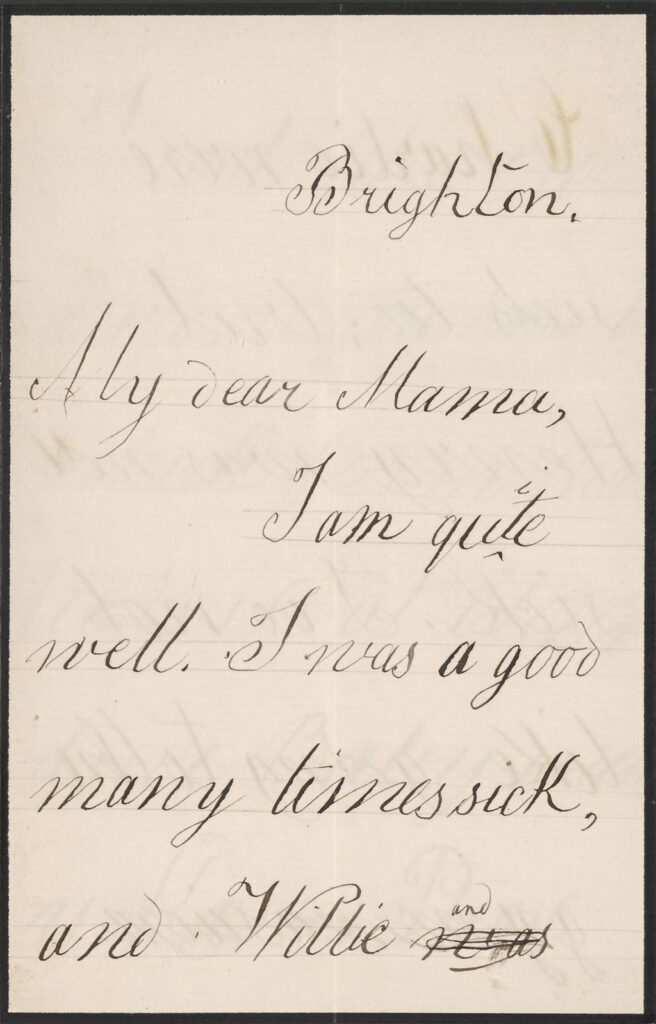 Brighton.
My dear Mama,
I am quite
well. I was a good
many times sick,
and Willie and was